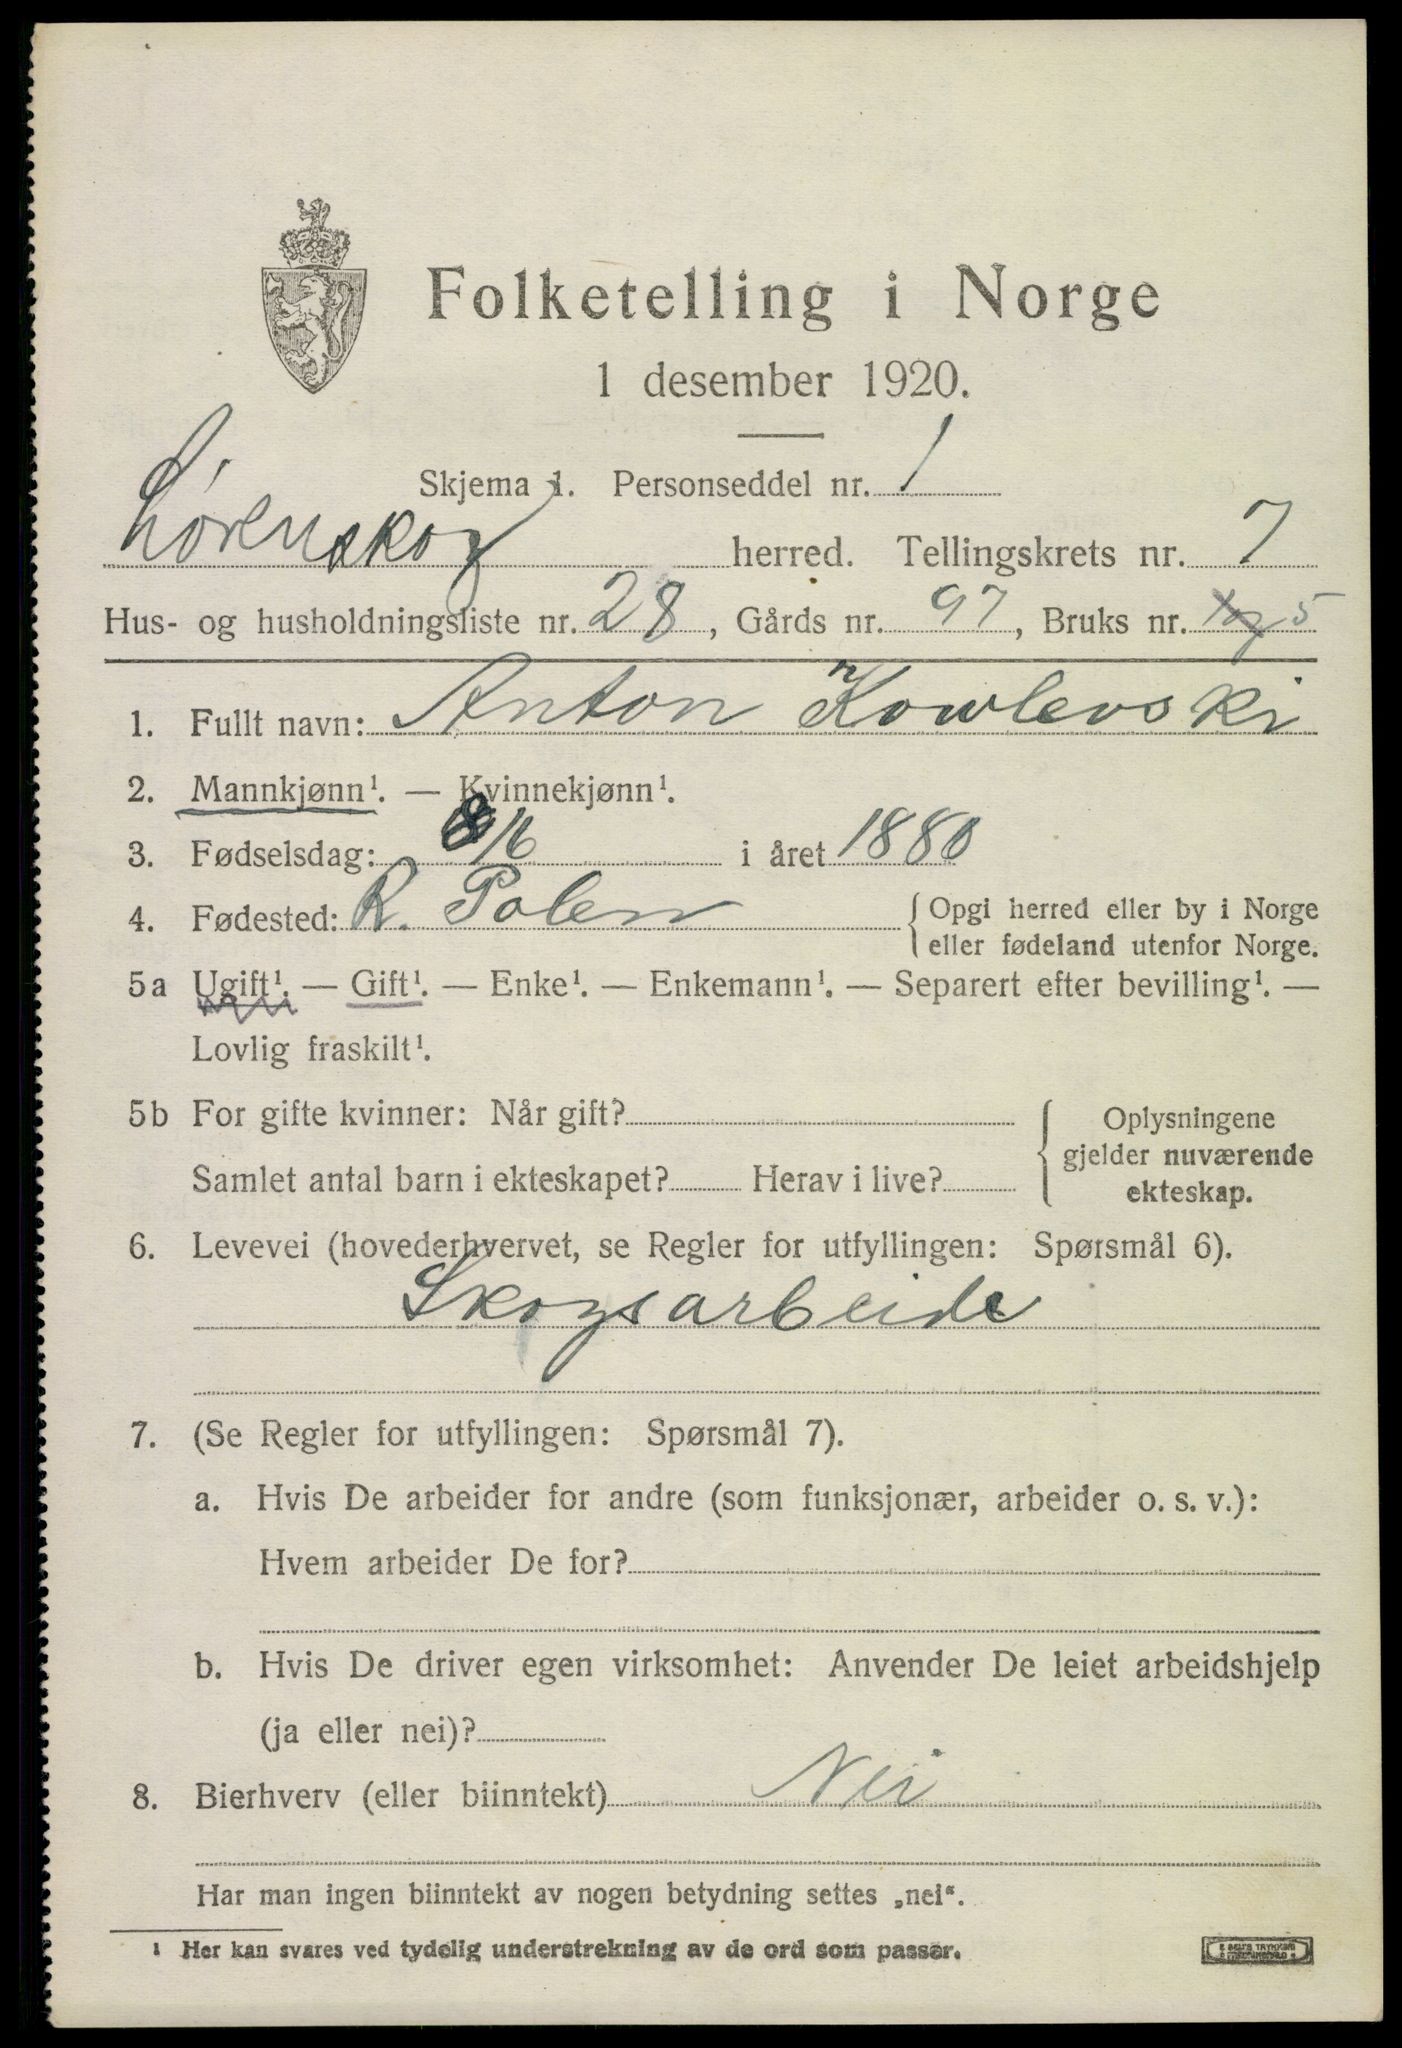 Folketelling i Norge
1 desember 1920.
Skjema 1. Personseddel nr. 1
Lørenskog herred. Tellingskrets nr. 7
Hus- og husholdningsliste nr. 28, Gårds nr. 97, Bruks nr. 5
1. Fullt navn: Anton Kowlevski
2. Mannkjønn¹. — Kvinnekjønn¹.
3. Fødselsdag: 8/6 i året 1880
4. Fødested: R. Polen { Opgi herred eller by i Norge
eller fødeland utenfor Norge.
5a Ugift¹. — Gift¹. — Enke¹. — Enkemann¹. — Separert efter bevilling¹. —
Lovlig fraskilt¹.
5b For gifte kvinner: Når gift? { Oplysningene
gjelder nuværende
Samlet antal barn i ekteskapet? Herav i live? ekteskap.
6. Levevei (hovederhvervet, se Regler for utfyllingen: Spørsmål 6).
Skogsarbeide
7. (Se Regler for utfyllingen: Spørsmål 7).
a. Hvis De arbeider for andre (som funksjonær, arbeider o. s. v.):
Hvem arbeider De for?
b. Hvis De driver egen virksomhet: Anvender De leiet arbeidshjelp
(ja eller nei)?
8. Bierhverv (eller biinntekt) Nei
Har man ingen biinntekt av nogen betydning settes „nei“.
¹ Her kan svares ved tydelig understrekning av de ord som passer.